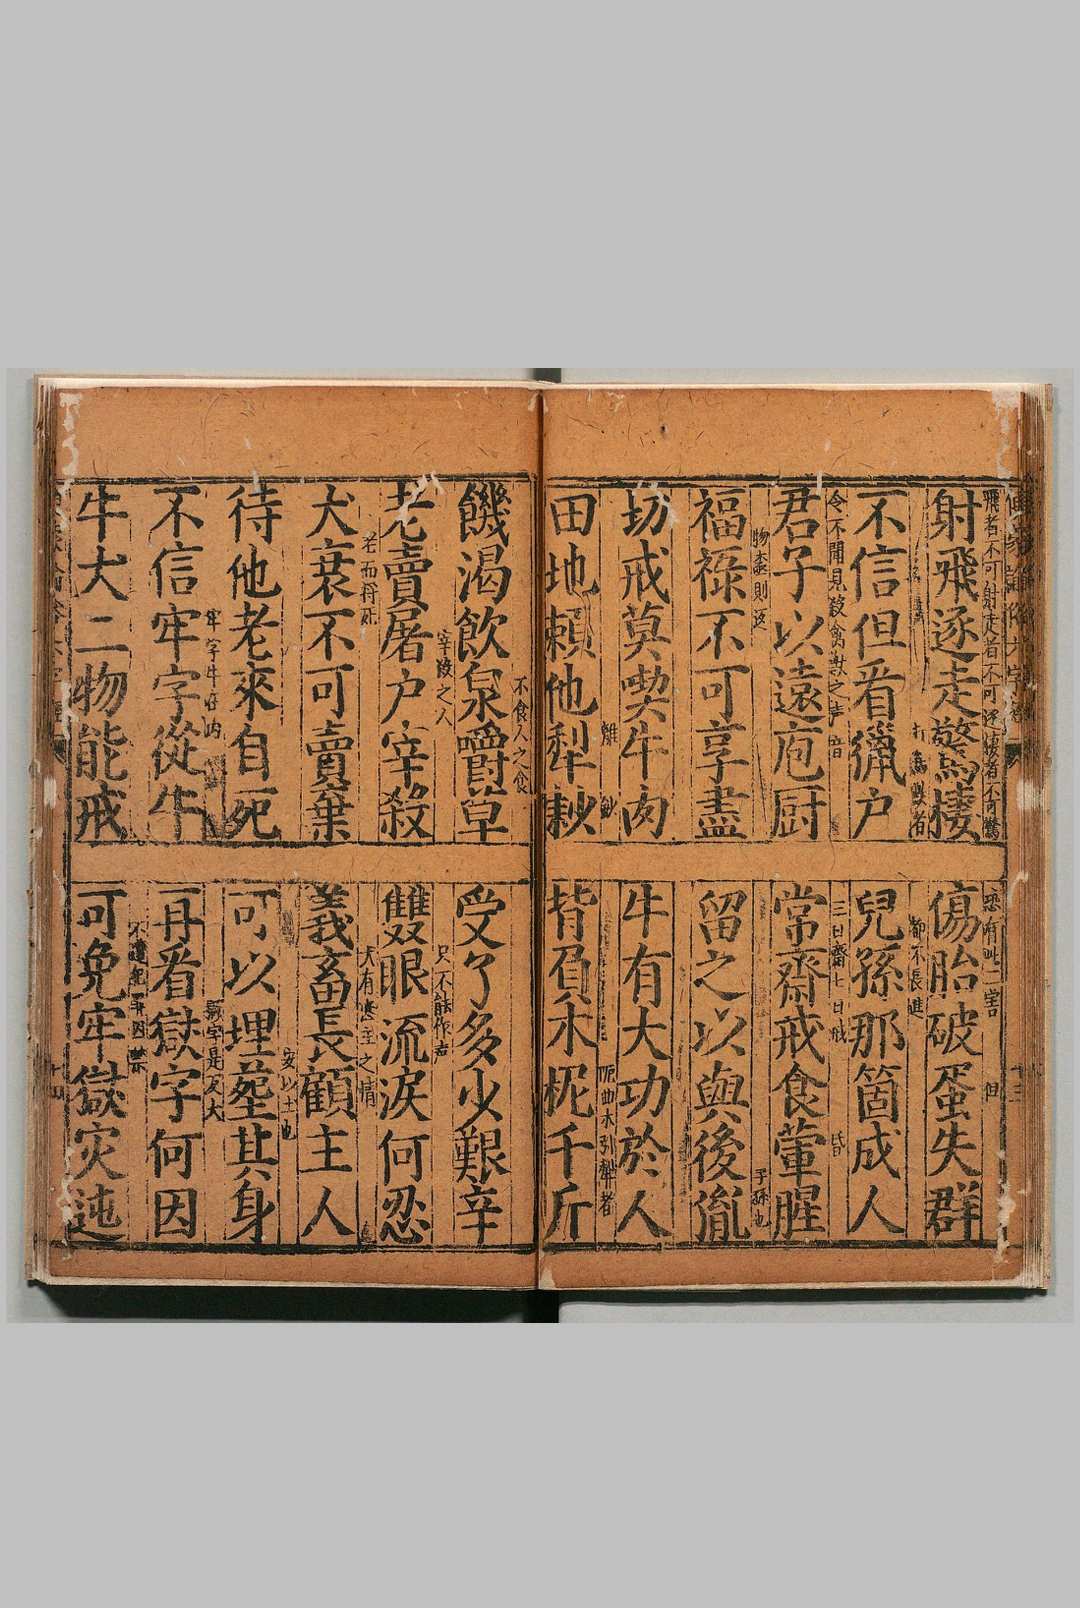 飛者不可射走者不可逐棲者不可驚
射飛逐走驚棲
傷胎破蛋失群
打鳥獸者
不信但看獵户
都不長進
兒孫那箇成人
令不聞見殺禽獸之声音
君子以遠庖厨
三日齋七日戒
常齋戒食葷腥
福祿不可享盡
子孫也
留之以與後胤
切戒莫喫牛肉
牛有大功於人
田地賴他犁耖
柅曲木引犁者
揹負木柅千斤
不食人之食
饑渴飲泉嚼草
受了多少艱辛
宰殺之人
老賣屠户宰殺
只不能作声
雙眼流淚何忍
老而将死
犬衰不可賣棄
犬有恋主之情
義畜長顧主人
待他老來自死
安以土也
可以埋塟其身
不信牢字從牛
再看獄字何因
牛犬二物能戒
可免牢獄灾迍